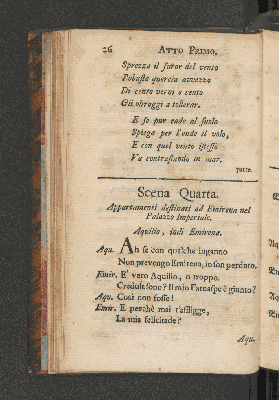 26 ATTO PRIMO.
Sprezza il furor del vento
Robusta quercia avvezza
Di cento verni e cento
Gli oltraggi a tollerar.
E se pur cade al suolo
Spiega per l'onde il volo,
E con quel vento istesso
Va contrastando in mar.
parte.
Scena Quarta.
Appartamenti destinati ad Emirena nel
Palazzo Imperiale.
Aquilio, indi Emirena.
Aqu. AH se con qualche inganno
Non prevengo Emirena, io son perduto.
Emir. E' vero Aquilio, o troppo
Credula sono? Il mio Farnaspe è giunto?
Aqu. Così non fosse!
Emir. E perchè mai t'affligge,
La mia felicitade?
Aqu.